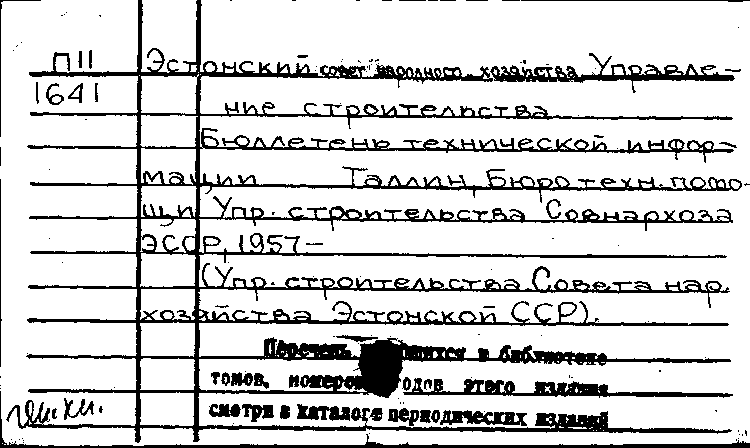 П11 Эстонский совет народного хозяйства Управле-
1641 ние строительства
Бюллетень технической инфор-
мации Таллин, Бюро техн. помо-
щи Упр. строительства Совнархоза
ЭССР, 1957-
(Упр. строительства Совета нар.
хозяйства Эстонской ССР).
Перечень в библиотеке
томов, номеров годов этого издания
смотри в каталоге периодических изданий